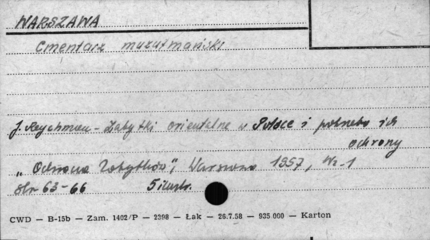 WARSZAWA
Cmentarz muzułmański
J. Reychman - Zabytki orientalne w Polsce i potrzeba ich
ochrony
„Ochrona Zabytków", Warszawa 1957, Nr-1
str 63-66 5 ilustr.
CWD — B-15b — Zam. 1402/P — 2398 — Łak — 26.7.58 — 935.000 — Karton